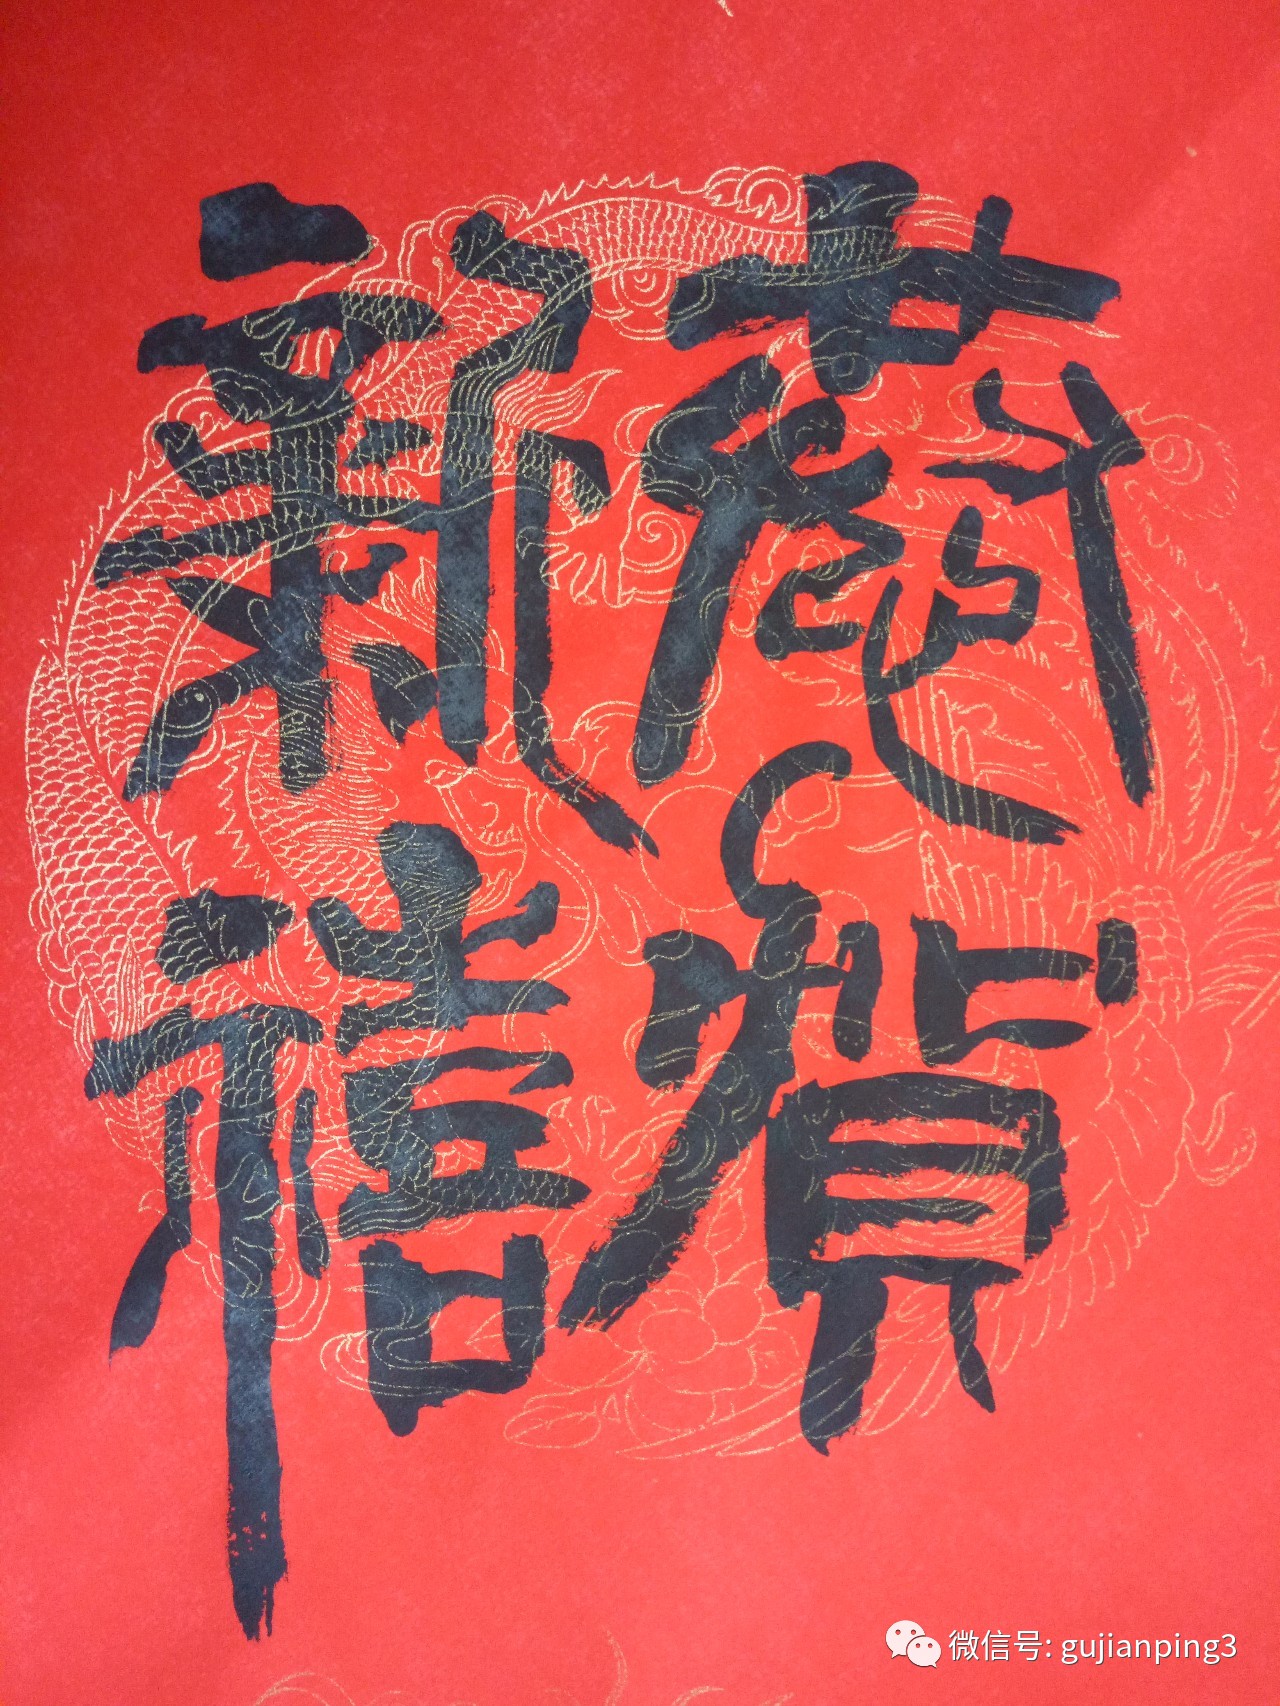 賀
新禧
微信号: gujianping3